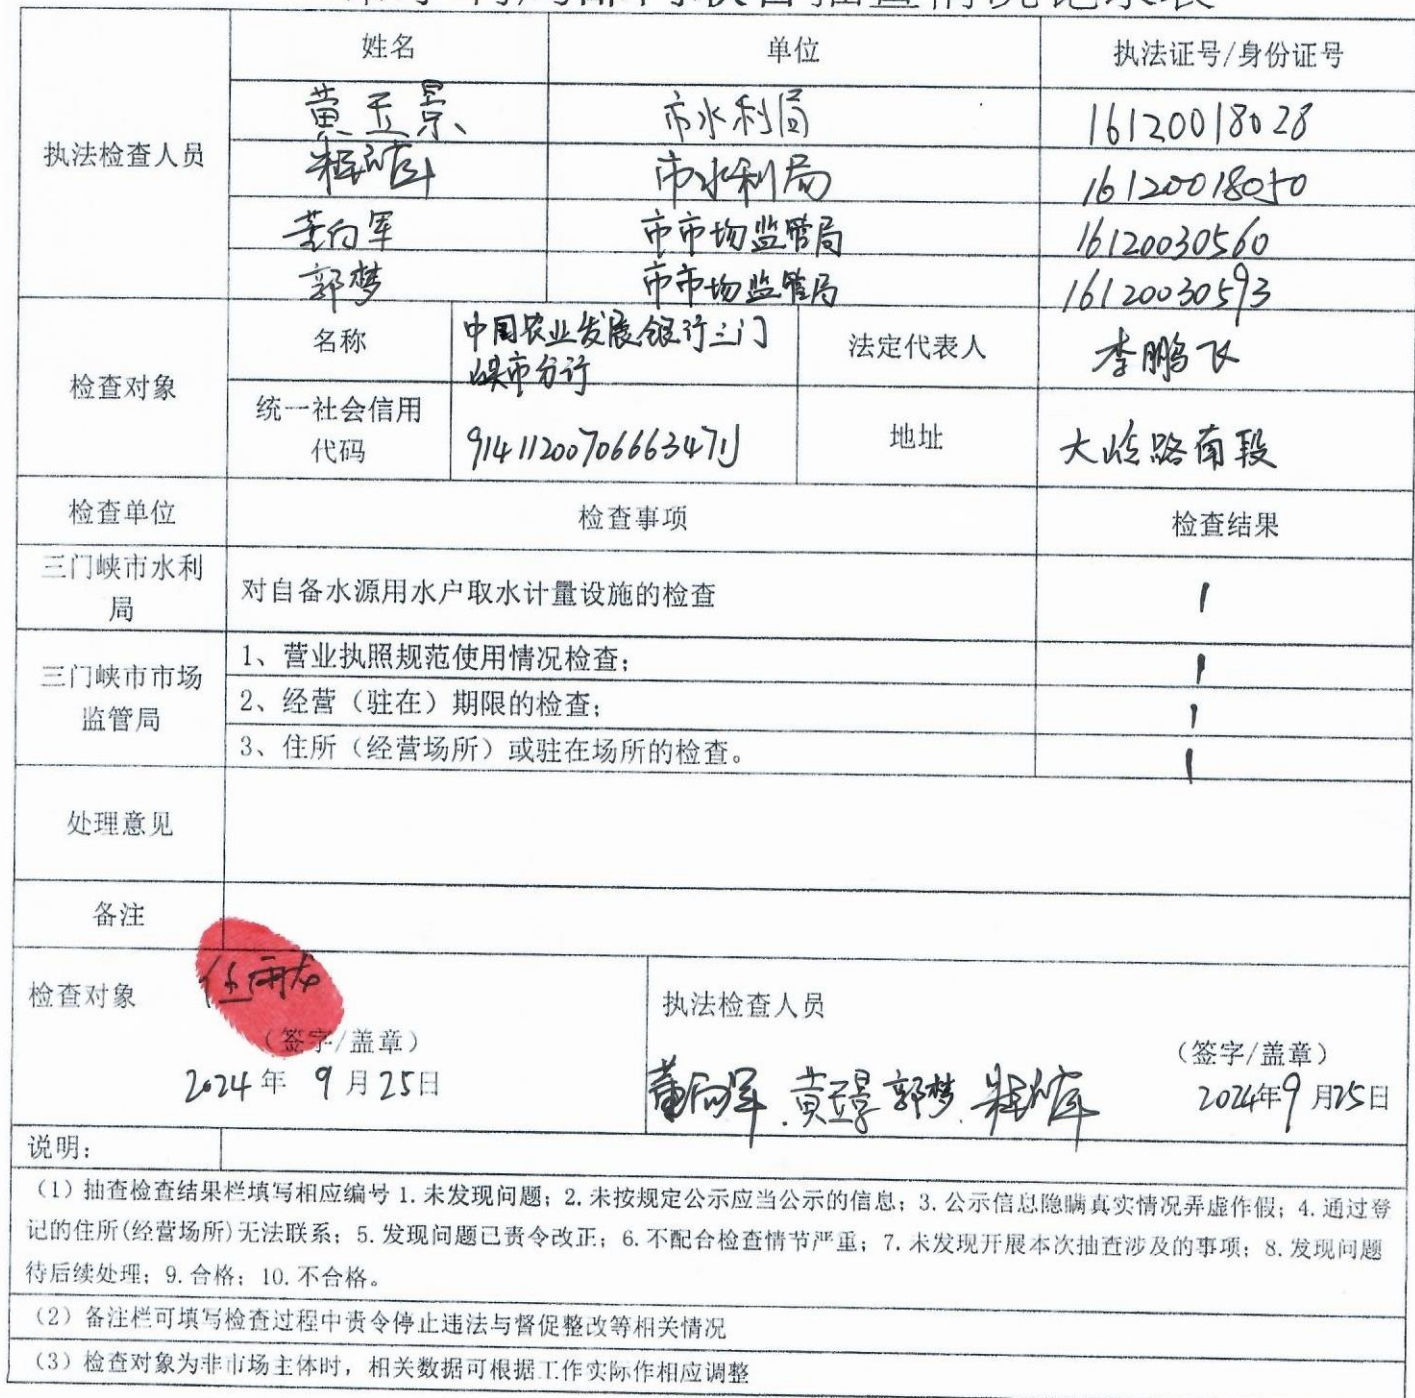 姓名 单位 执法证号/身份证号
执法检查人员
黄玉景 市水利局 16120018028
市水利局 16120018050
董向军 市市场监管局 16120030560
郭梦 市市场监管局 16120030593
检查对象
名称 中国农业发展银行三门 法定代表人 李鹏飞
峡市分行
统一社会信用 地址
代码 大岭路南段
检查单位 检查事项 检查结果
三门峡市水利
局
对自备水源用水户取水计量设施的检查 1
三门峡市市场
监管局
1、营业执照规范使用情况检查; 1
2、经营（驻在）期限的检查; 1
3、住所（经营场所）或驻在场所的检查。 1
处理意见
备注
检查对象
（签字/盖章）
2024年 9月25日
执法检查人员
（签字/盖章）
董向军.黄玉景 郭梦. 2024年9月25日
说明:
（1）抽查检查结果栏填写相应编号 1.未发现问题; 2.未按规定公示应当公示的信息; 3.公示信息隐瞒真实情况弄虚作假; 4.通过登
记的住所(经营场所)无法联系; 5.发现问题已责令改正; 6.不配合检查情节严重; 7.未发现开展本次抽查涉及的事项; 8.发现问题
待后续处理; 9.合格; 10.不合格。
（2）备注栏可填写检查过程中责令停止违法与督促整改等相关情况
（3）检查对象为非市场主体时，相关数据可根据工作实际作相应调整